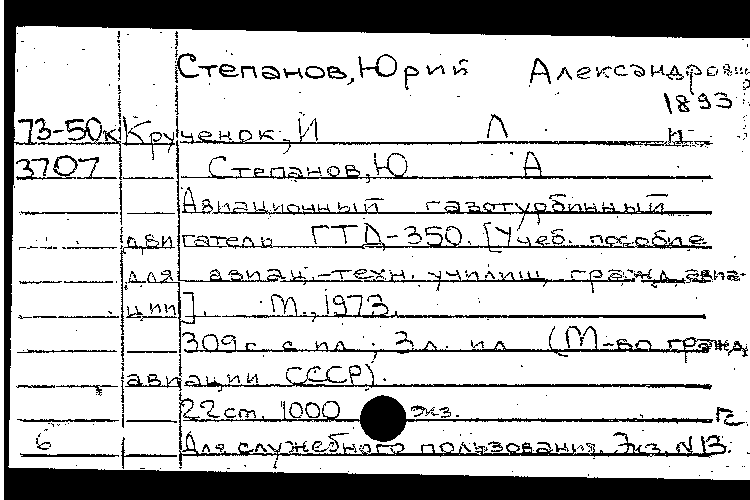 Степанов, Юрий Александрович
1893
73-50к Крученок, И Л
3707 Степанов, Ю А
Авиационный газотурбинный
двигатель ГТД-350. [Учеб. пособие
для авиац.-техн. училищ гражд. авиа-
ции]. М., 1973.
309 с. с ил.; 3 л. ил (М-во гражд.
авиации СССР).
22 см. 1000 экз.
6 Для служебного пользования. Экз. N 13.